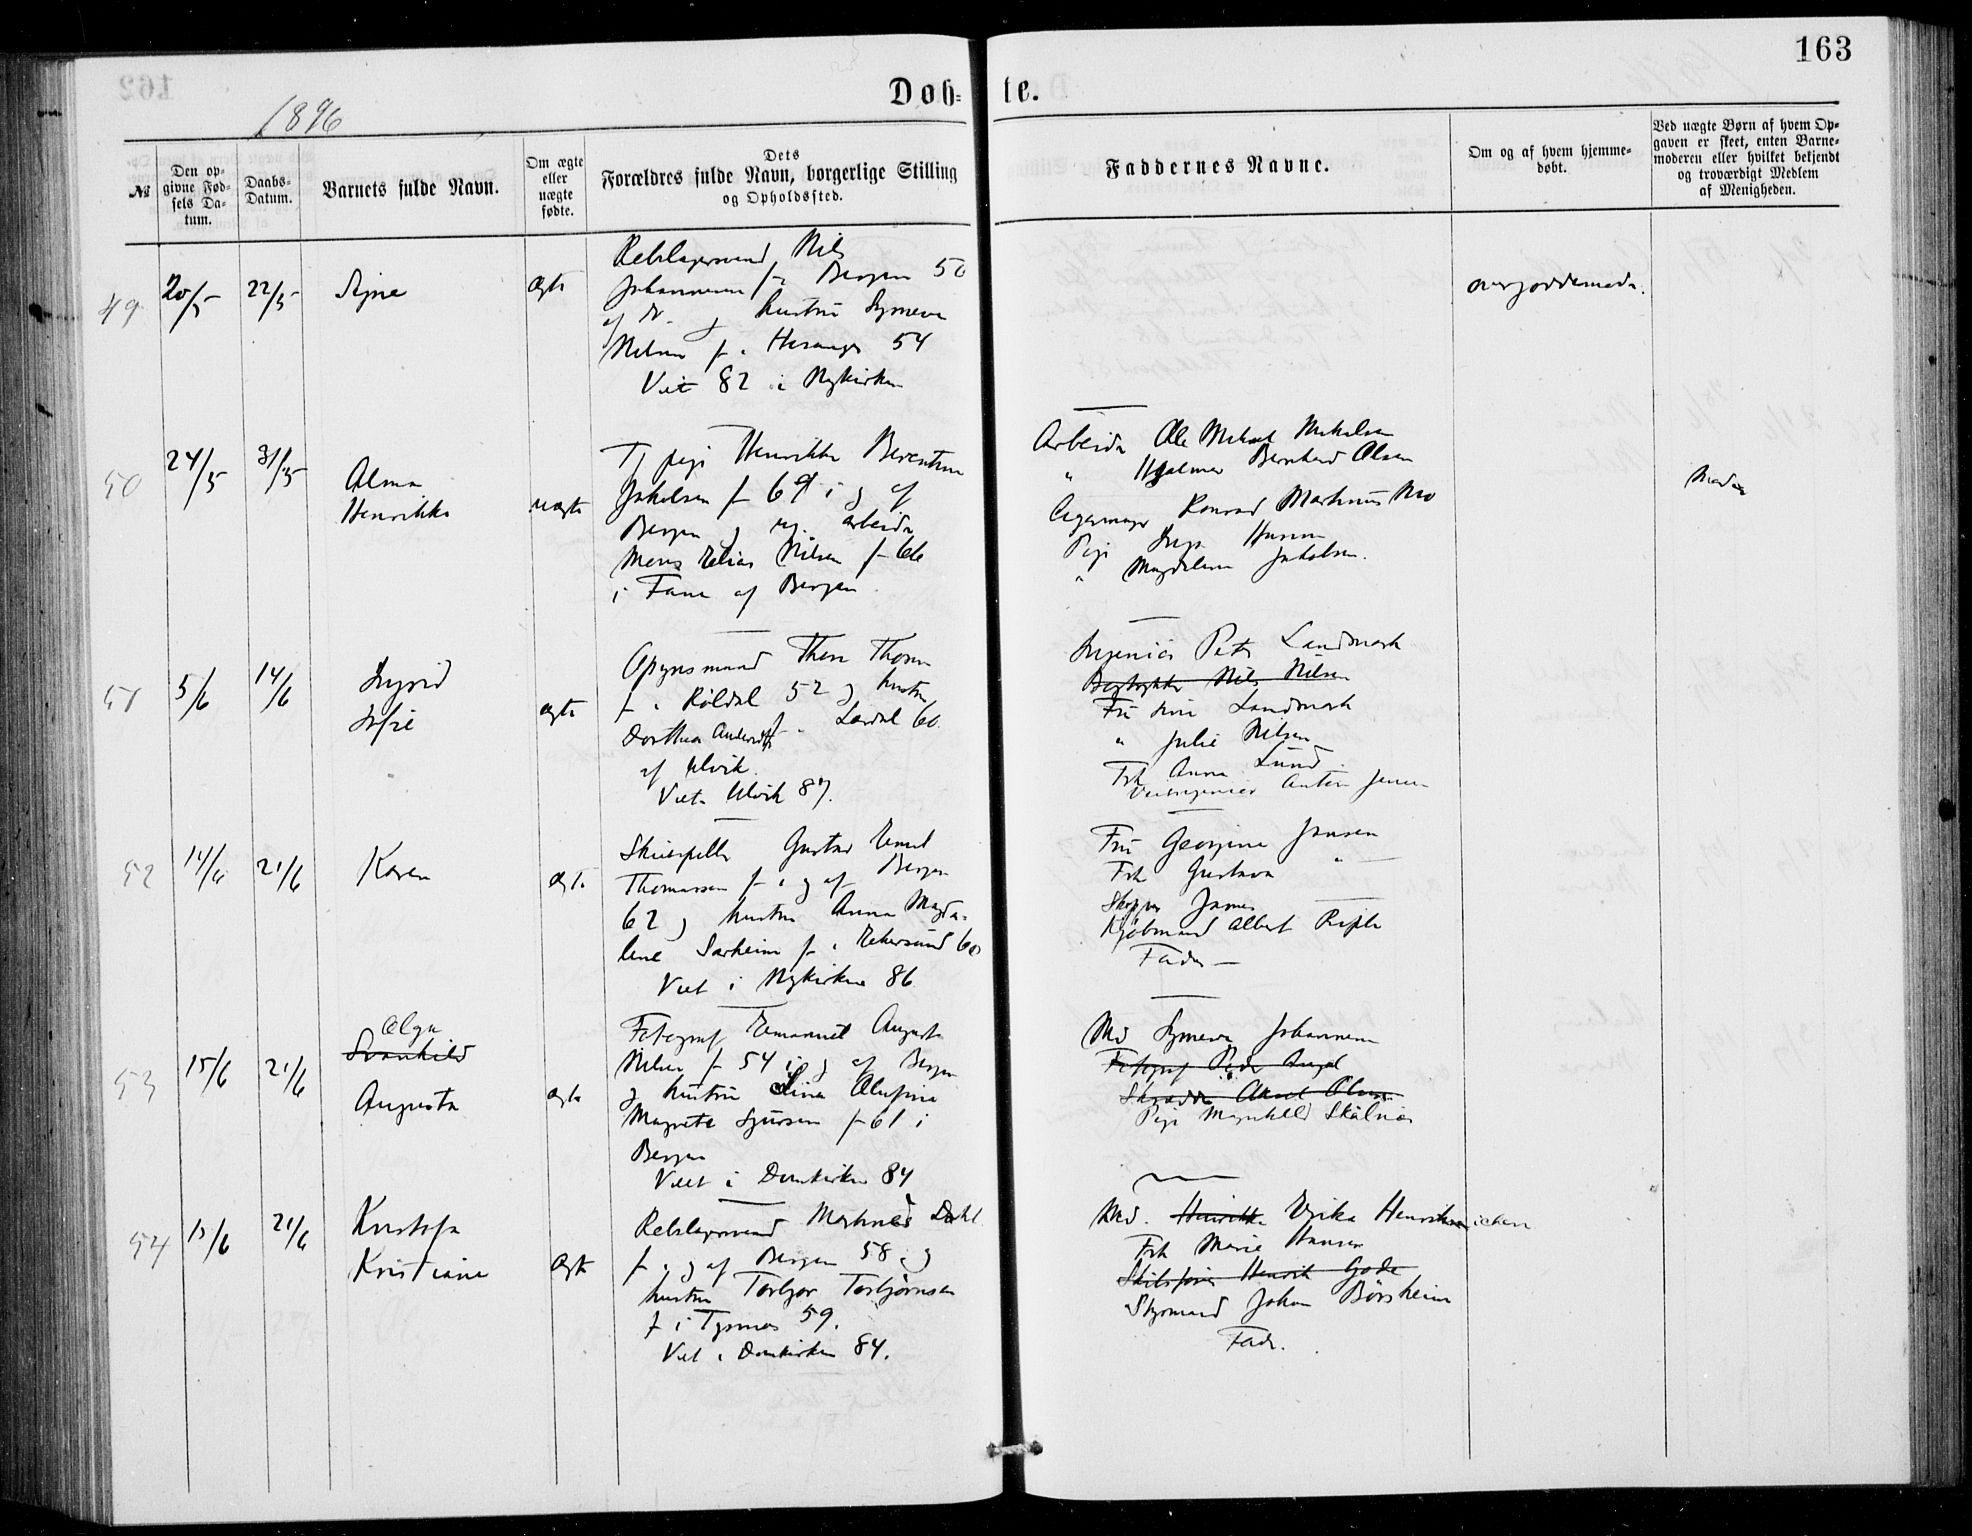 163
Døb-
te.
1896
№
Den op-
givne Fød-
sels Da-
tum.
Daabs-
Datum.
Barnets fulde Navn.
Om ægte
eller
uægte
fødte.
Dets
Forældres fulde Navn, borgerlige Stilling
og Opholdssted.
Faddernes Navne.
Om og af hvem hjemme-
døbt.
Ved uægte Børn af hvem Op-
gaven er skeet, enten Barne-
moderen eller hvilket bekjendt
og troværdigt Medlem
af Menigheden.
49
20/5
22/5
Signe
ægte
Rebslagersvend Nils
Johannesen f i Bergen 50
af do. g hustru Synneva
Nilsen f. i 54
Viet 82 i Nykirken
50
24/5
31/5
Alma
Henrikke
uægte
Tj pige Henrikke Berentine
Jakobsen f 69 i g af
Bergen g arbeider
Mons Elias Nilsen f 66
i Fane af Bergen
Arbeider Ole Mikael Mikalsen
" Hjalmar Bernhard Olsen
Konrad Martinus Mo
Pige Inga Hansen
" Magdalene Jakobsen.
Moder
51
5/6
14/6
Ingrid
Sofie
ægte
Opsynsmand Thore Thorsen
f. i Røldal 52 g hustru
Dorthea f. i Lærdal 60
af Ulvik.
Viet i Ulvik 87.
Ingeniør Peter Landmark
Nils Nilsen
Fru Landmark
" Julie Nilsen
Frk Anna Lund
Anton Jensen
52
14/6
21/6
Karen
ægte
Gustav Emil
Thomassen f i g af Bergen
62 g hustru Anna Magda-
lene Sørheim f i Ekersund 60
Viet i Nykirken 86
Fru Georgine Jansen
Frk Gustava "
Skipper James
Kjøbmand Albert
Fader
53
15/6
21/6
Olga
Svanhild
Augusta
ægte
Fotograf Emanuel August
Nilsen f 54 i g af Bergen
g hustru Lina Olufine
Magrete Sjursen f 61 i
Bergen
Viet i Domkirken 84
Md Synneva Johannesen
Fotograf Peder
Skrædder Aksel Olsen
Pige Magnhild Skålnæs
54
15/6
21/6
Kristofa
Kristiane
ægte
Rebslagersvend Martines Dahl
f i g af Bergen 58 g
hustru Torbjør Torbjørnsen
f i Tysnæs 59.
Viet i Domkirken 84.
Md. Henrikke Henrichsen
Frk Marie Hansen
Henrik Gade
Styrmand Johan Børsheim
Fader.